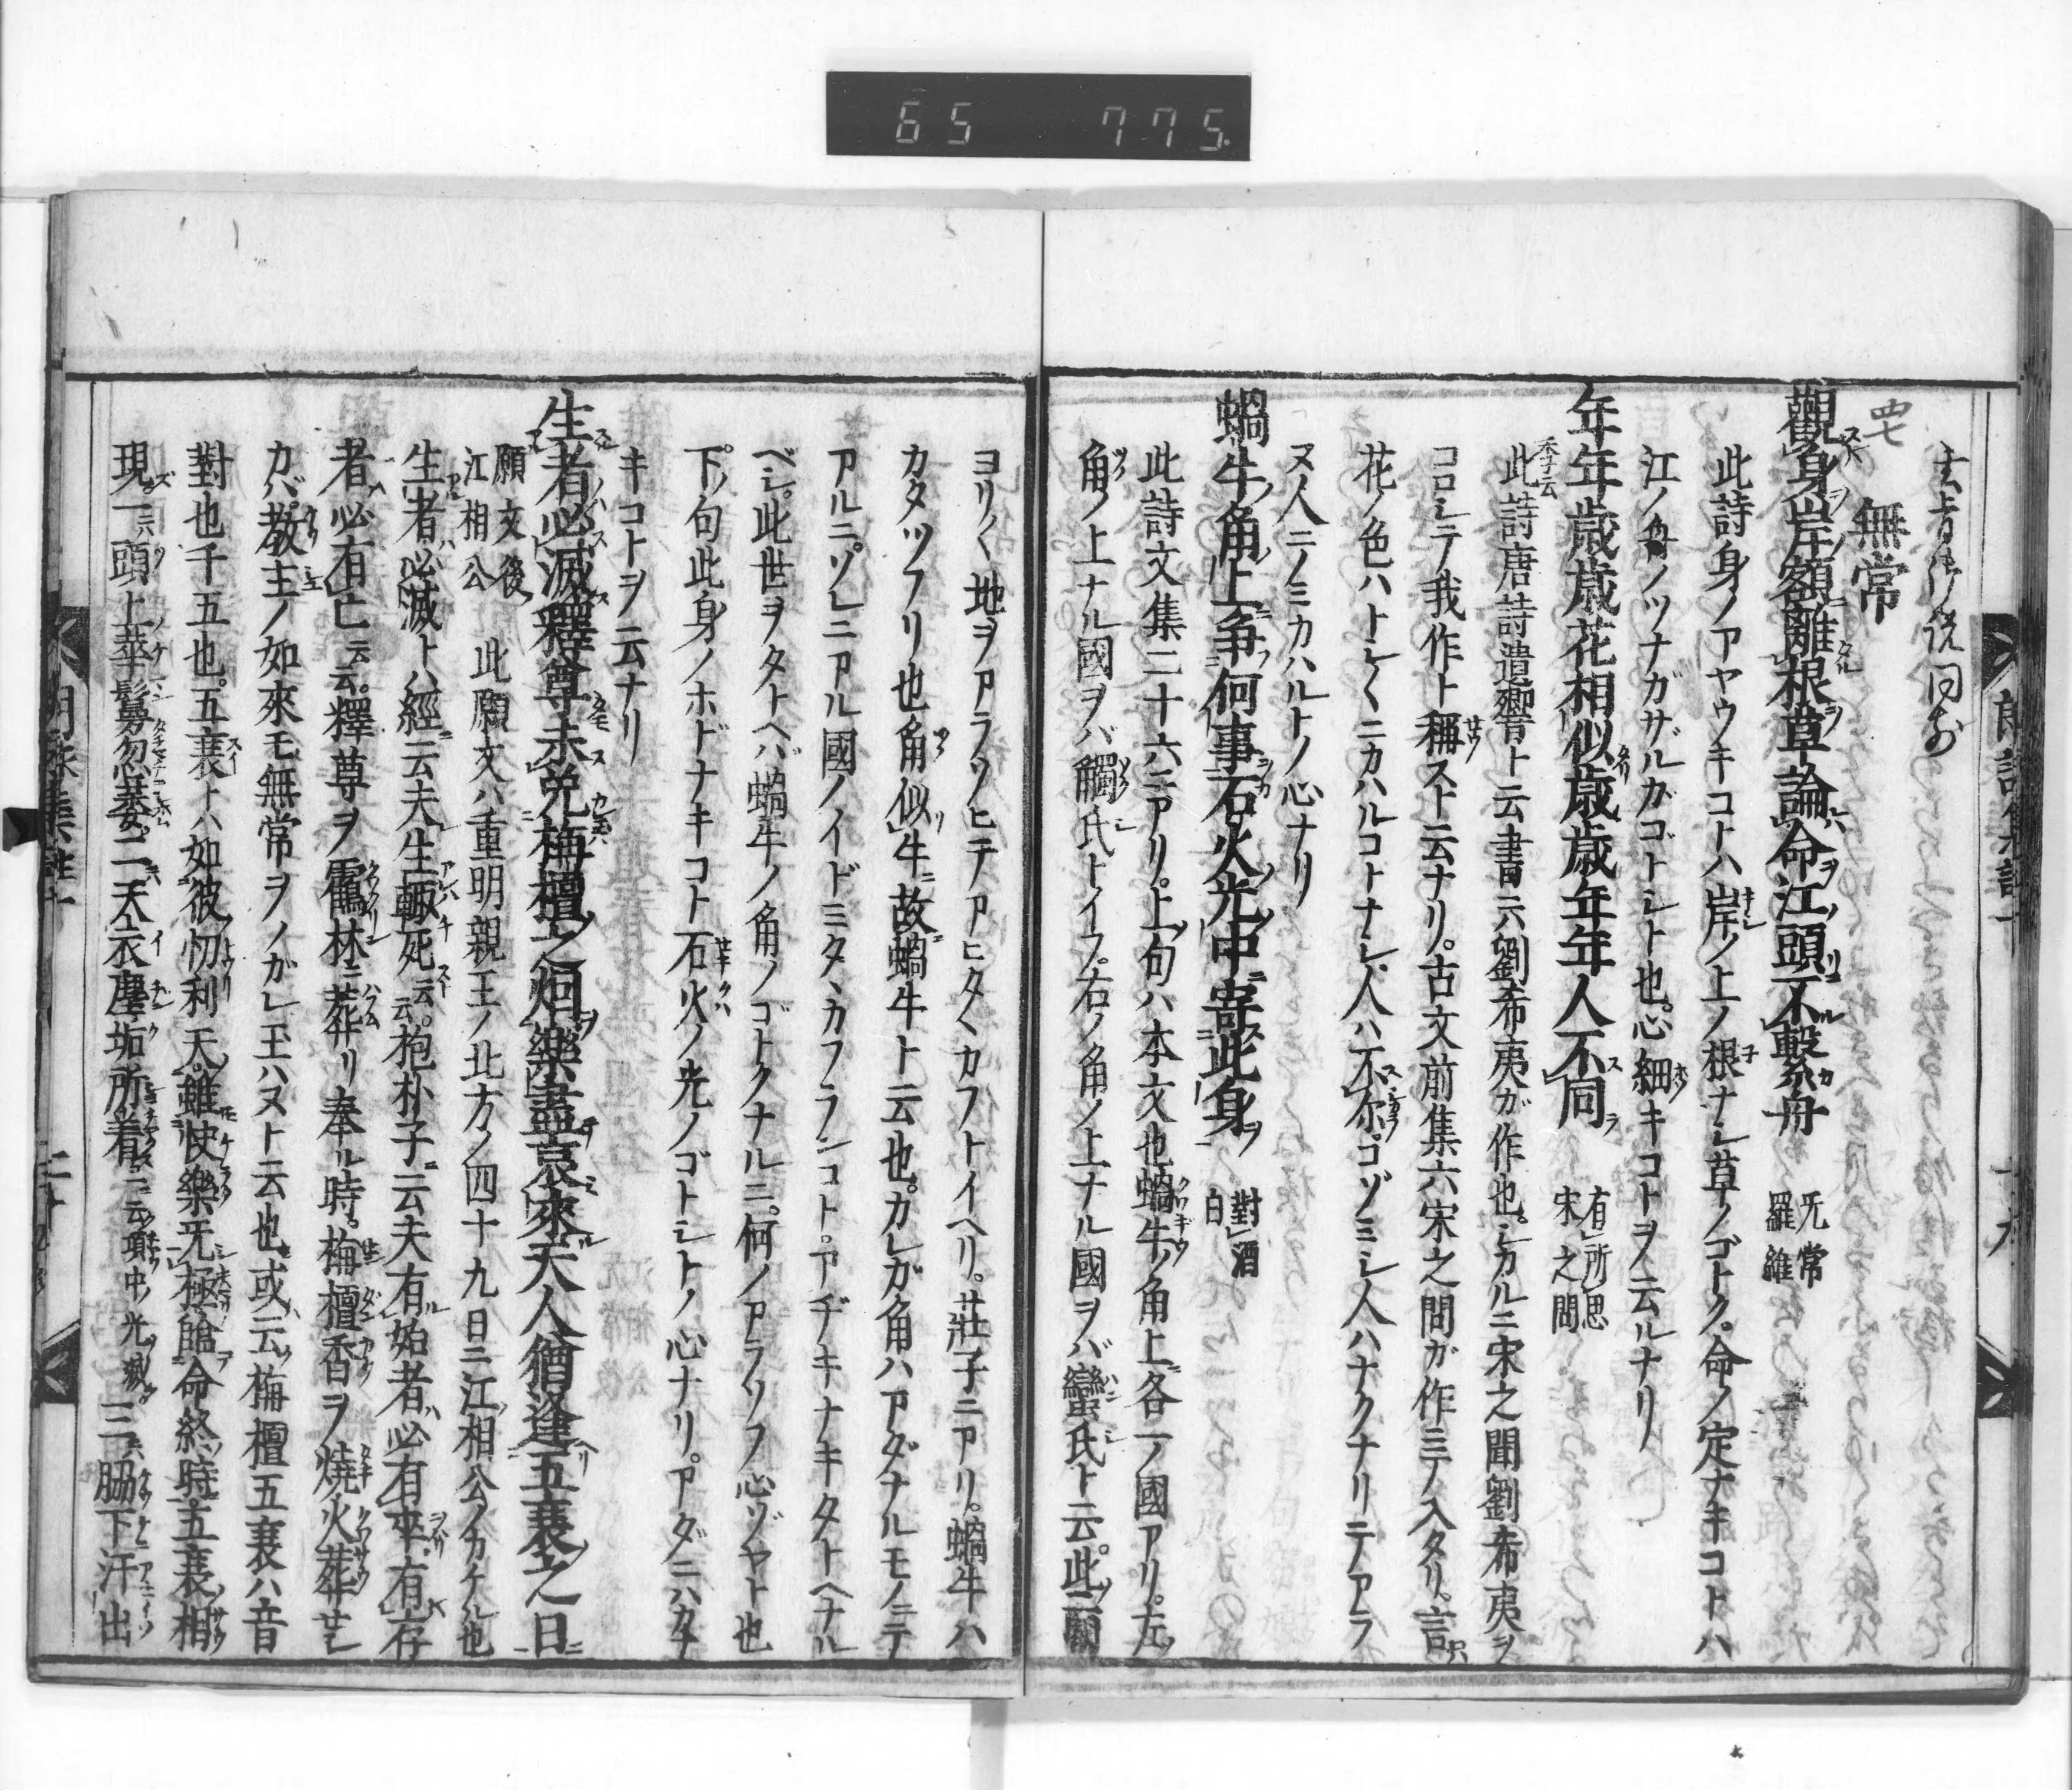 65 775.
無常
觀身岸額離根草論命江頭不繫舟 无常 羅維
此詩身ノアヤウキコトハ岸ノ上ノ根ナシ草ノゴトク。命ノ定ナキコトハ
江ノ舟ノツナガザルカゴトシト也。心細キコトヲ云ルナリ
年年歳歳花相似歳歳年年人不同 有所思 宋之問
此詩唐詩遺響ト云書ニ六劉希夷ガ作也。シカルニ宋之問劉希夷ヲ
コロシテ我作ト稱スト云ナリ。古文前集六宋之問ガ作ニノ入タリ。言ハ
花ノ色ハトシ〱ニカハルコトナシ。人ハ不尓コゾミシ人ハナクナリテアラ
ヌ人ニノミカハルトノ心ナリ
蝸牛角上争何事石火光中寄此身 對酒 白
此詩文集二十六ニアリ。上句ハ本文也蝸牛ノ角上ニ各一ノ國アリ。左ノ
角ノ上ナル國ヲバ觸氏トイフ。右ノ角ノ上ナル國ヲバ蠻氏ト云。此二國
ヨリ〱地ヲアラソヒテアヒタヽカフトイヘリ。莊子ニアリ。蝸牛ハ
カタツフリ也角似牛故蝸牛ト云也。カレガ角ハアダナルモノニテ
アルニ。ソレニアル國ノイドミタヽカフランコト。アヂキナキタトヘナル
ベシ。此世ヲタトヘバ蝸牛ノ角ノゴトクナルニ。何ノアラソフ心ゾヤト也
下ノ句此身ノホドナキコト石火ノ光ノゴトシトノ心ナリ。アダニハカナ
キコトヲ云ナリ
生者必滅釋尊未免栴檀之烟樂盡哀來天人猶逢五衰之日
願文後 江相公 此願文ハ重明親王ノ北方ノ四十九日ニ江相公ノカケル也
生者必滅トハ經云夫生輙死云。抱朴子ニ云夫有始者必有卒有存
者必有亡云云。釋尊ヲ靍林ニ葬リ奉ル時。栴檀香ヲ燒火葬セシ
カバ。教主ノ如來モ無常ヲノガレ玉ハヌト云也或云栴檀五衰ハ音
對也千五也。五衰トハ如彼忉利天。雖快樂无極臨命終時五衰相
現一頭上華鬘忽萎。二天衣塵垢所着二云項中光滅。三脇下汗出